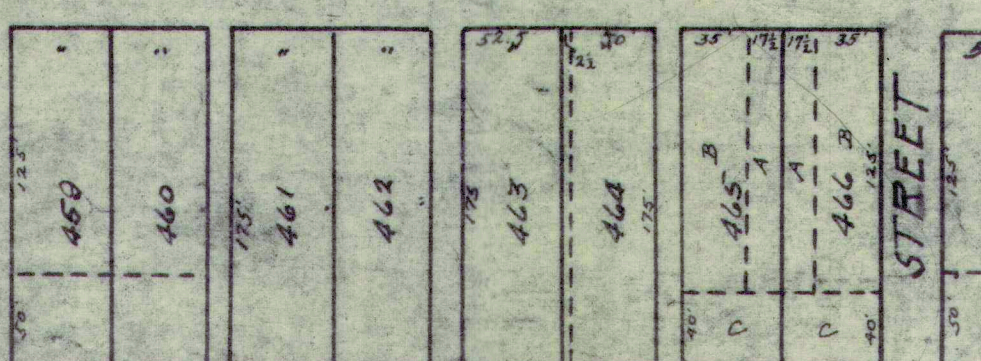 " " " " 52.5 50' 35' 17½ 17½ 35'
2½
125' 459 460 175' 461 462 " 175 463 464 175' 465 B A A 466 B 125' STREET 125'
50' 40' C C 40' 50'